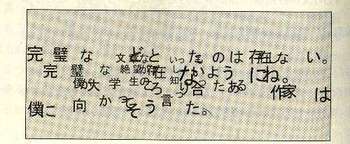 完璧な文章などといったものは存在しない。
完璧な絶望が存在しないようにね。
僕が大学生のころ知り合ったある作家は
僕に向かってそう言った。